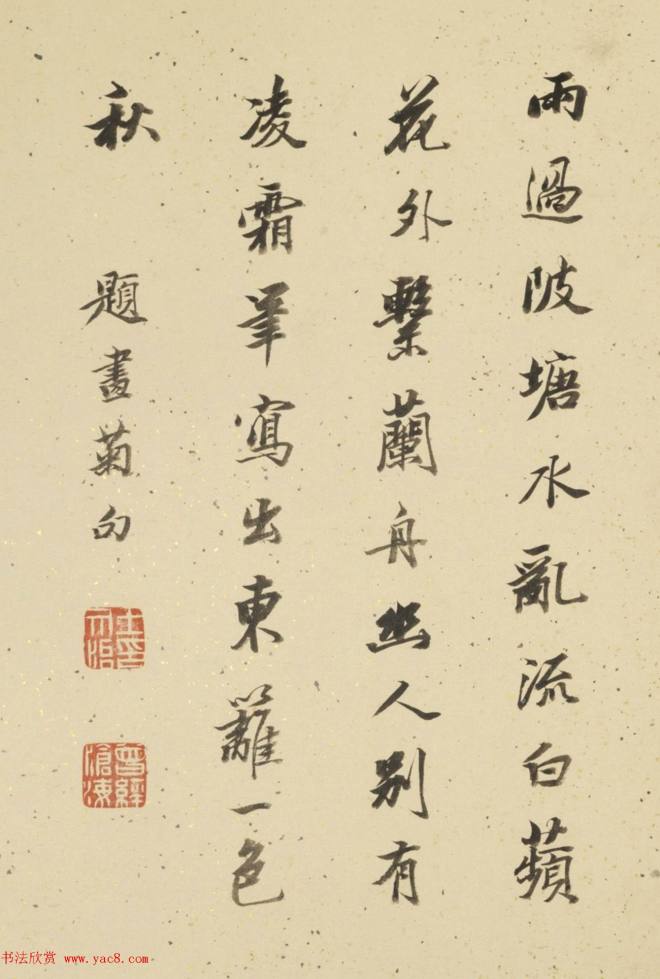 雨過陂塘水亂流白蘋
花外繫蘭舟幽人別有
凌霜筆寫出東籬一色
秋 題畫菊句
曾經滄海
书法欣赏 www.yac8.com